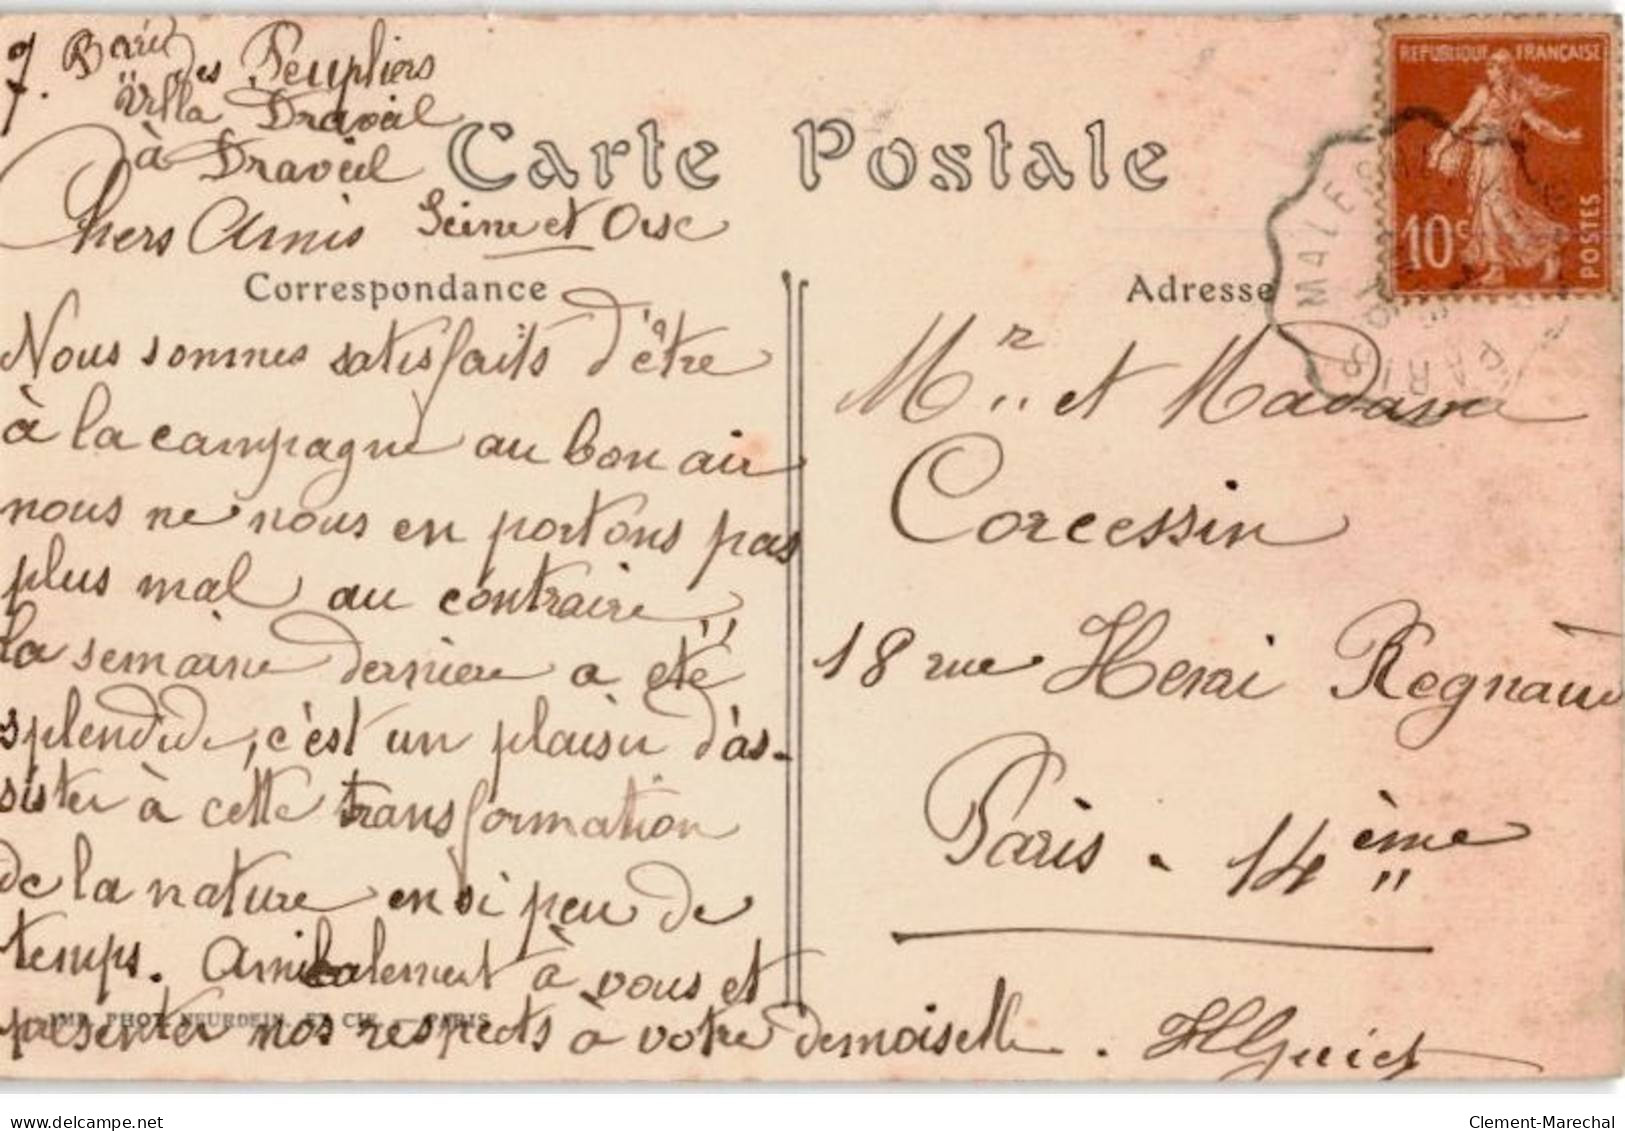 7. Bard des Peupliers
"Villa Draveil
à Draveil
Seine et Oise
Carte Postale
Chers Amis
Correspondance
Nous sommes satisfaits d'être
à la campagne au bon air
nous ne nous en portons pas
plus mal au contraire
la semaine dernière a été
splendide, c'est un plaisir d'as-
sister à cette transformation
de la nature en si peu de
temps. Amicalement à vous et
présenter nos respects à votre demoiselle. HGuiet
IMP. PHOT. NEURDEIN ET CIE. - PARIS
Adresse
REPUBLIQUE FRANÇAISE
10c
POSTES
MALESHERBES
PARIS
Mr et Madame
Corcessin
18 rue Henri Regnault
Paris - 14ème
Clement-Marechal
delcampe.net